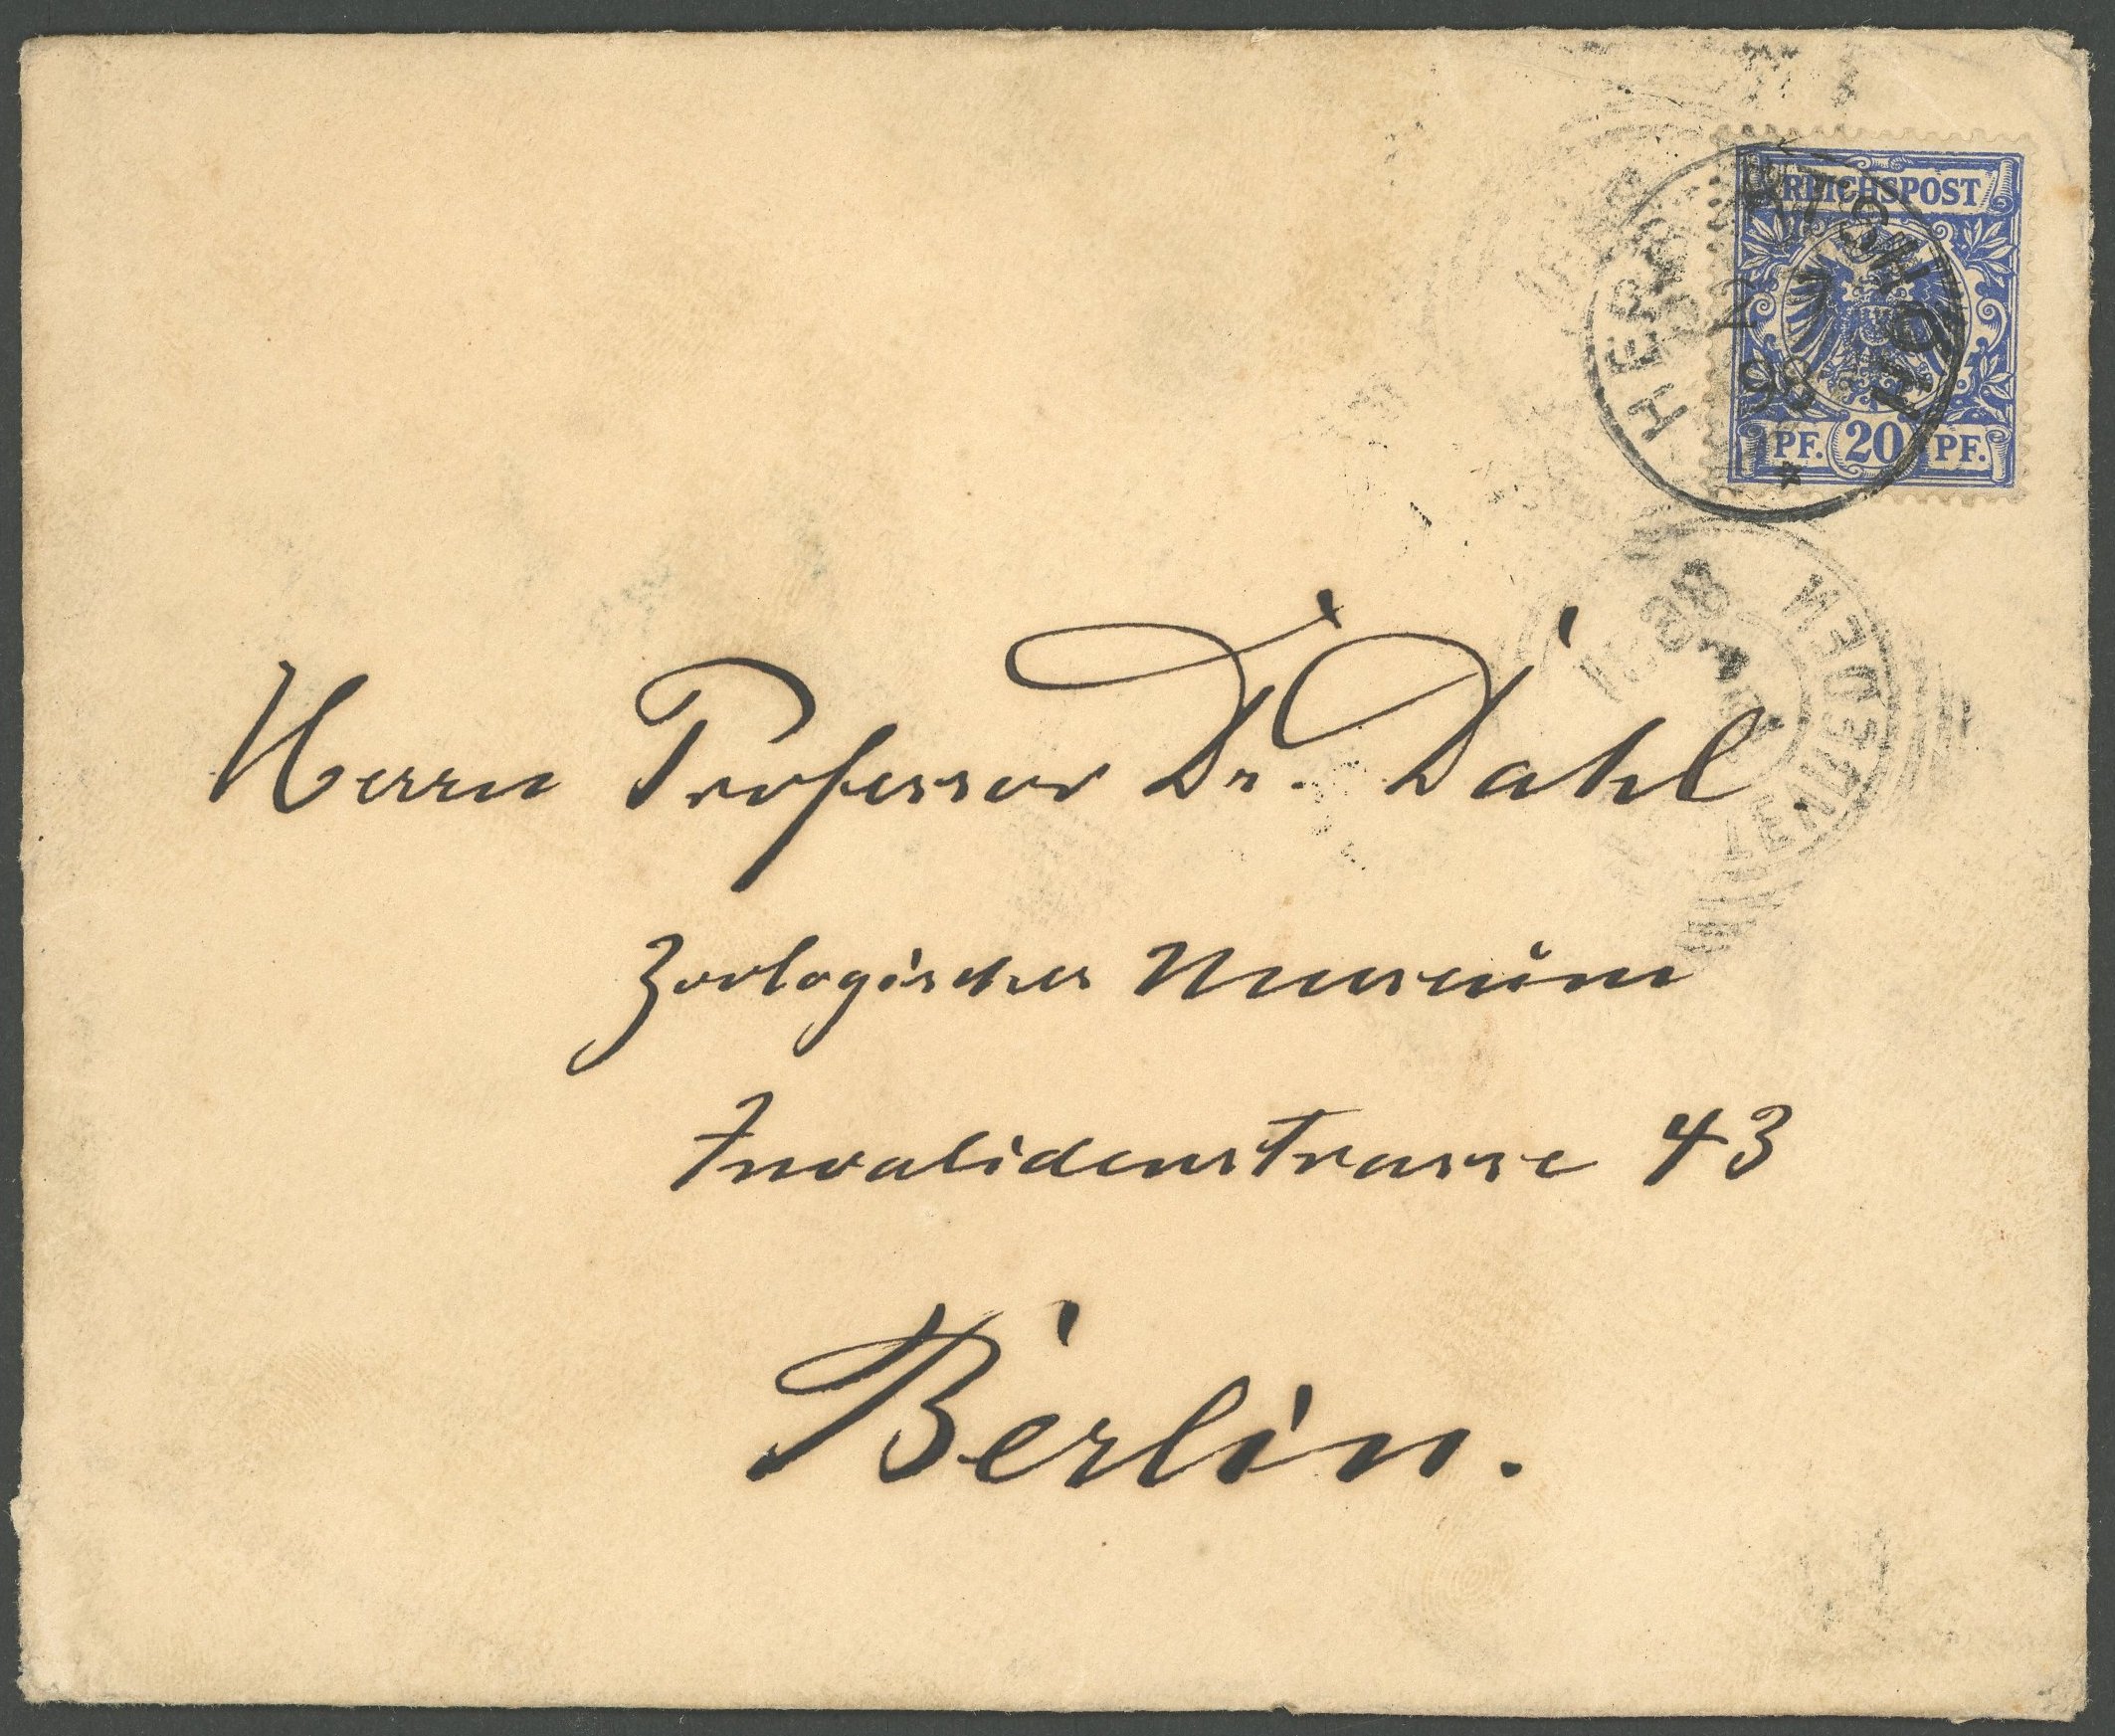 REICHSPOST
HERBERTSHÖH
2
7
98
*
PF. 20 PF.
1898
Herrn Professor Dr. Dahl.
Zoologisches Museum
Invalidenstrasse 43
Berlin.